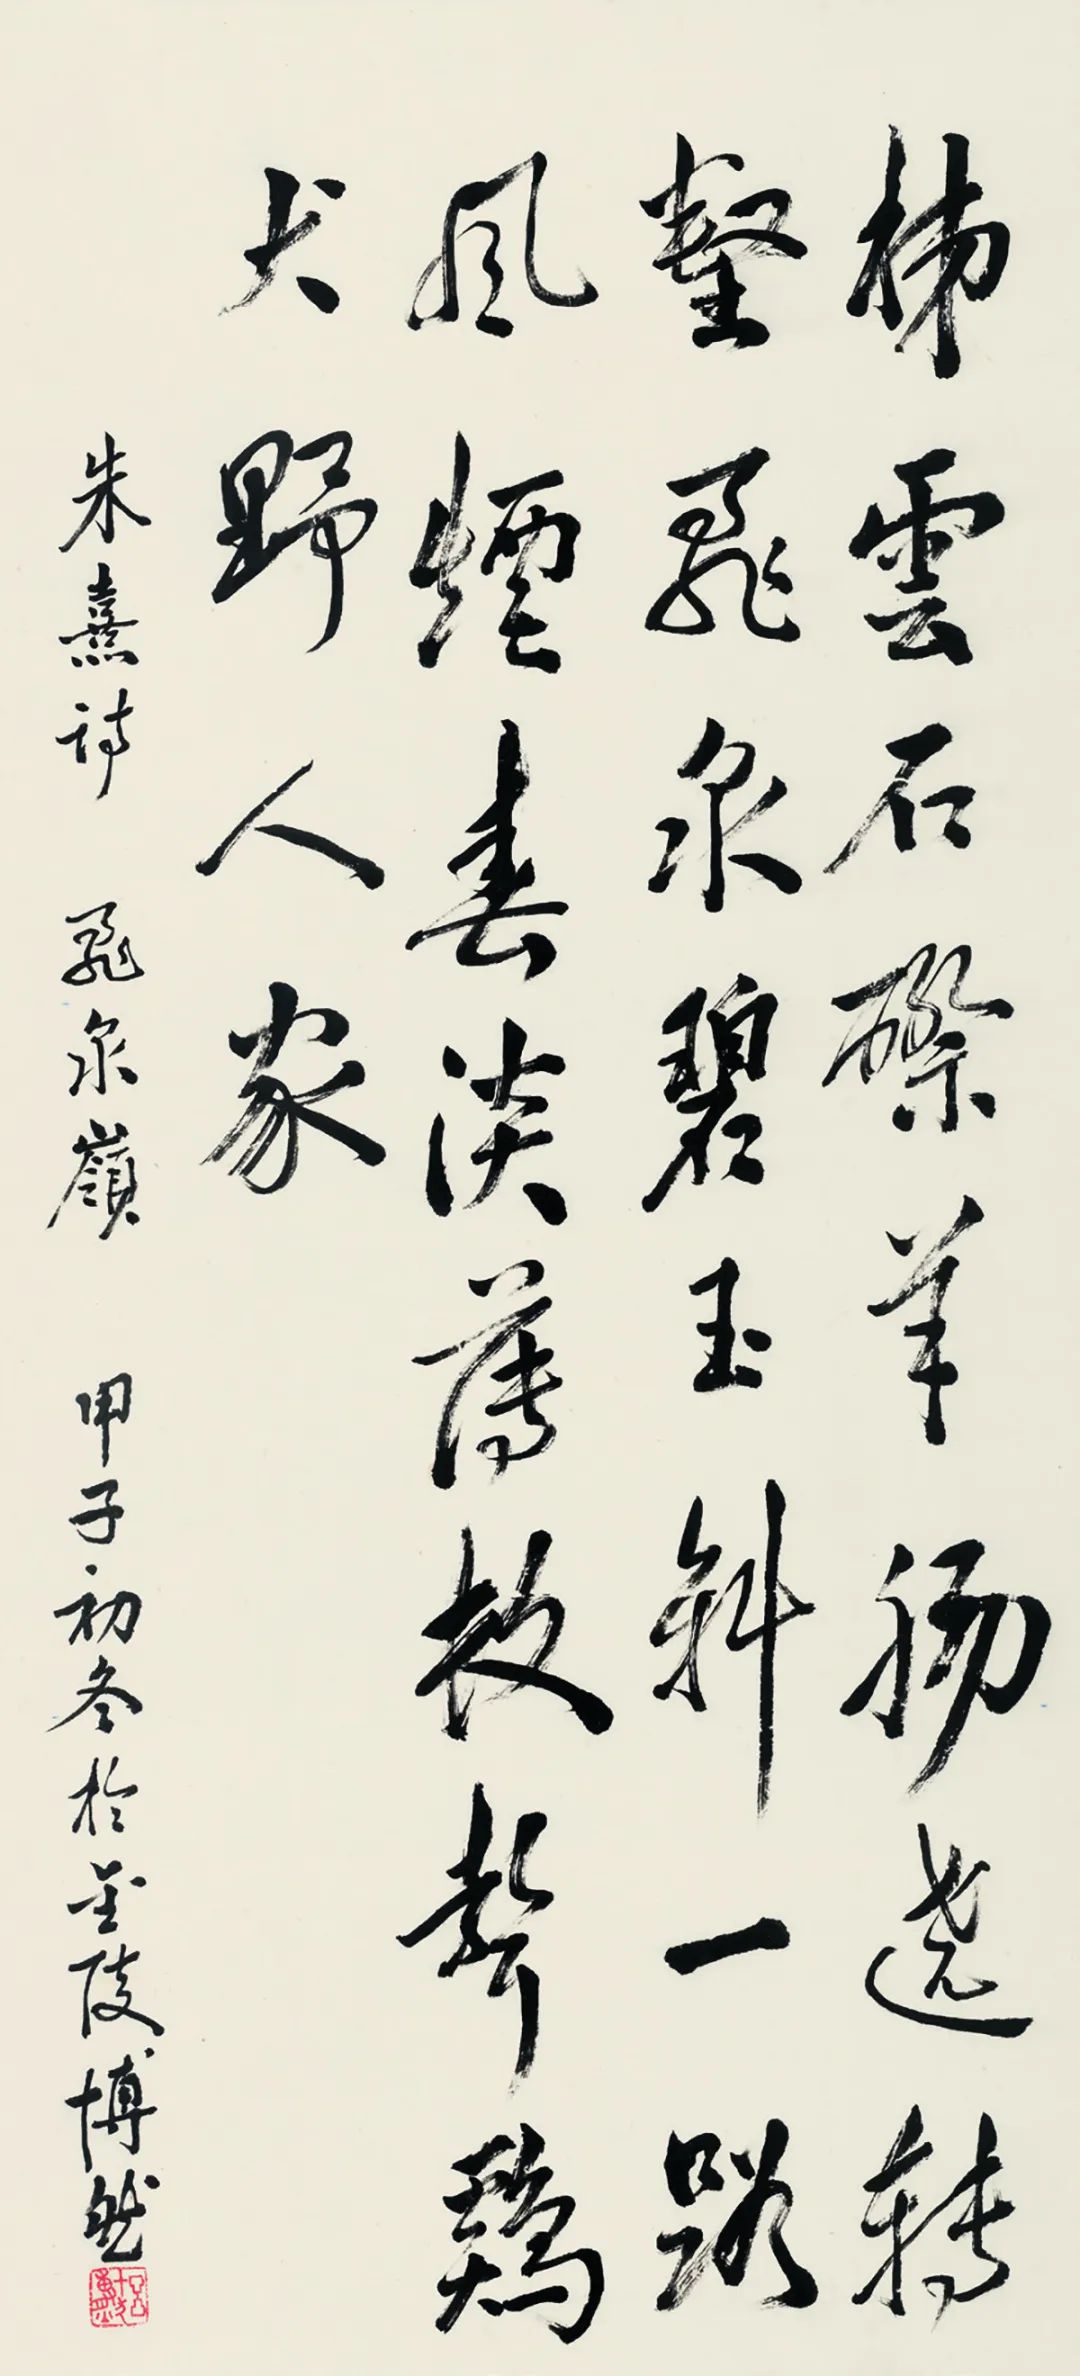 梯雲石磴羊腸遶轉
壑飛泉碧玉斜一路
風煙春淡薄數聲鷄
犬野人家
朱熹詩 飛泉嶺 甲子初冬於金陵博然